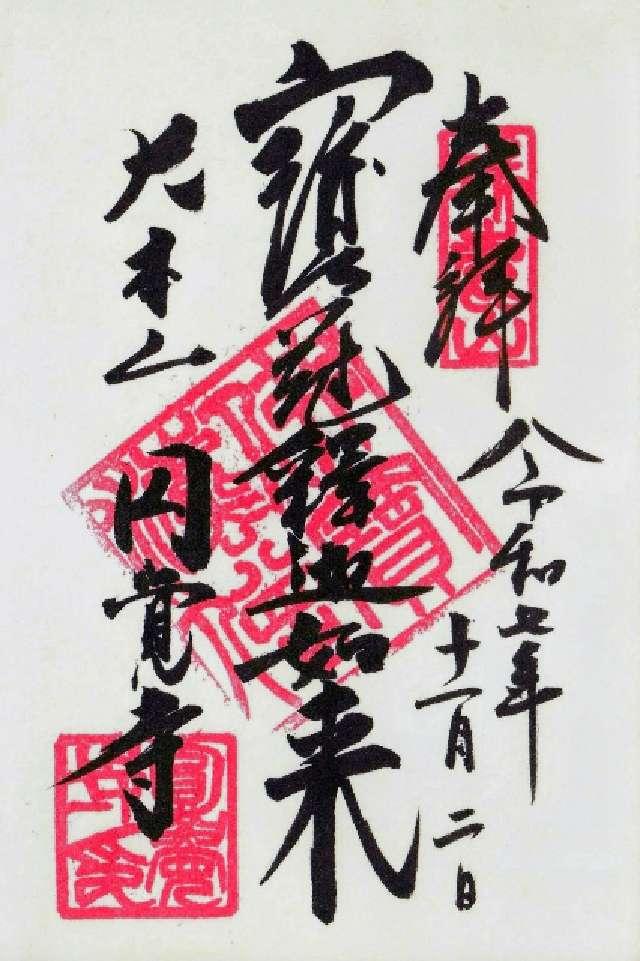 奉拝
令和七年
十一月二日
寳冠釋迦如来
大本山
円覚寺